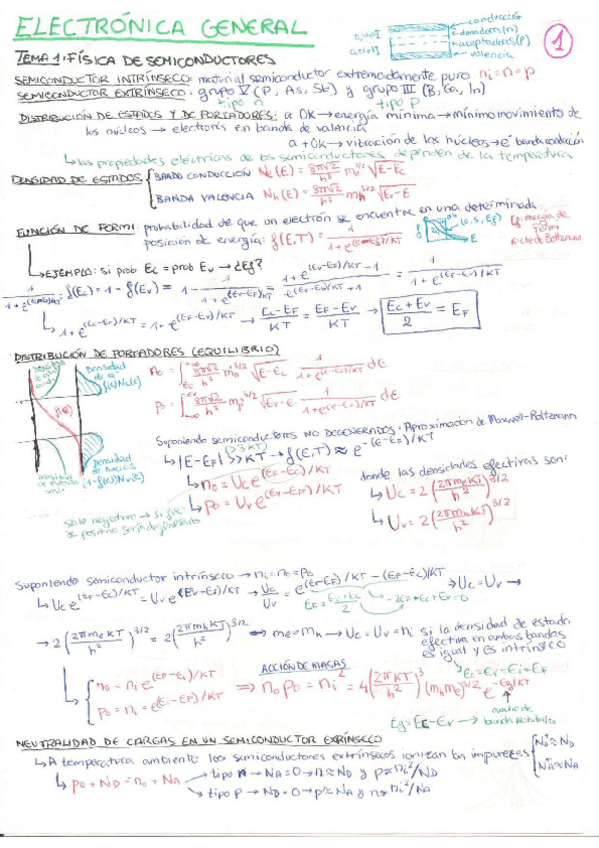 ELECTRÓNICA GENERAL
conducción
donadores (n)
aceptadores (p)
valencia
1
TEMA 1: FÍSICA DE SEMICONDUCTORES
SEMICONDUCTOR INTRÍNSECO: material semiconductor extremadamente puro ni = n = p
SEMICONDUCTOR EXTRÍNSECO: grupo V (P, As, Sb) y grupo III (B, Ga, In)
tipo n tipo p
DISTRIBUCIÓN DE ESTADOS Y DE PORTADORES: a 0K → energía mínima → mínimo movimiento de
los núcleos → electrones en banda de valencia
a ≠ 0K → vibración de los núcleos → e⁻ banda conducción
↳ las propiedades eléctricas de los semiconductores dependen de la temperatura
DENSIDAD DE ESTADOS
BANDA CONDUCCIÓN Ne(E) = 8π√2/h³ me^3/2 √E-Ec
BANDA VALENCIA Nh(E) = 8π√2/h³ mh^3/2 √Ev-E
FUNCIÓN DE FERMI: probabilidad de que un electrón se encuentre en una determinada
posición de energía: f(E,T) = 1/(1+e^(E-Ef)/KT)
(0.5, Ef)
E
Ef: energía de
Fermi
K: cte de Boltzmann
↳ EJEMPLO: si prob Ec = prob Ev → ¿Ef?
f(Ec) = 1 - f(Ev)
1+e^(Ec-EF)/KT = 1+e^(EF-Ev)/KT → (Ec-EF)/KT = (EF-Ev)/KT → (Ec+Ev)/2 = EF
DISTRIBUCIÓN DE PORTADORES (EQUILIBRIO)
densidad
de e⁻
f(E)Nc(E)
f(E)
densidad
de huecos
(1-f(E))Nv(E)
Suponiendo semiconductores NO DEGENERADOS: Aproximación de Maxwell-Boltzmann
(>3KT)
↳ |E-EF| >> KT → f(E,T) ≈ e^-(E-EF)/KT
↳ n₀ = Uc e^(EF-Ec)/KT
↳ p₀ = Uv e^(Ev-EF)/KT
donde las densidades efectivas son:
↳ Uc = 2(2πmeKT/h²)^3/2
↳ Uv = 2(2πmhKT/h²)^3/2
sale negativo → si fuese
positivo sería degenerado
Suponiendo semiconductor intrínseco → ni = n₀ = p₀
↳ Uc e^(EF-Ec)/KT = Uv e^(Ev-EF)/KT → Uc/Uv = e^(Ev-EF)/KT-(EF-Ec)/KT → Uc = Uv →
EF = (Ec+Ev)/2 → -2EF+Ec+Ev=0
→ 2(2πmeKT/h²)^3/2 = 2(2πmhKT/h²)^3/2 → me = mh → Uc = Uv = ni si la densidad de estado
efectiva en ambas bandas
es igual y es intrínseco
ACCIÓN DE MASAS
↳ n₀ = ni e^(EF-Ei)/KT
p₀ = ni e^(Ei-EF)/KT
⇒ n₀p₀ = ni² = 4(2πKT/h²)³ (mh me)^3/2 e^-Eg/KT
Eg = Ec-Ev → ancho de
banda prohibida
NEUTRALIDAD DE CARGAS EN UN SEMICONDUCTOR EXTRÍNSECO
↳ A temperatura ambiente los semiconductores extrínsecos ionizan las impurezas
Nd⁺ ≈ ND
Na⁻ ≈ NA
↳ p₀ + ND = n₀ + NA
tipo N → NA = 0 → n ≈ ND y p ≈ ni²/ND
tipo P → ND = 0 → p ≈ NA y n ≈ ni²/NA